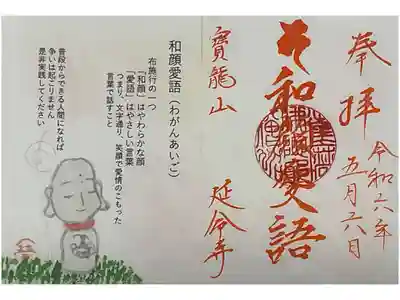 奉拝
令和六年
五月六日
和顔愛語
寳龍山
延命寺
和顔愛語(わがんあいご)
布施行の一つ
「和顔」はやわらかな顔
「愛語」はやさしい言葉
つまり、文字通り、笑顔で愛情のこもった
言葉で話すこと
普段からできる人間になれば
争いは起こりません
是非実践してください